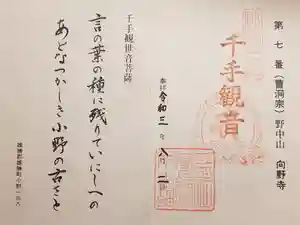 第七番(曹洞宗)野中山 向野寺
千手観音
奉拝 令和三年 八月二日
千手観世音菩薩
言の葉の種に残りていにしへの
あとなつかしき小野の古さと
雄勝郡雄勝町小野一四八